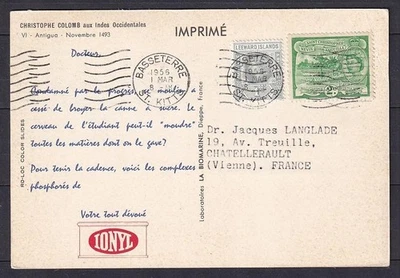 CHRISTOPHE COLOMB aux Indes Occidentales
VI - Antigua - Novembre 1493
IMPRIMÉ
Docteur,
Condamné par le progrès, ce moulin a
cessé de broyer la canne à sucre. Le
cerveau de l'étudiant peut-il "moudre"
toutes les matières dont on le gave?
Pour tenir la cadence, voici les complexes
phosphorés de
Votre tout dévoué
IONYL
RO-LOC COLOR SLIDES
Laboratoires LA BIOMARINE, Dieppe, France
BASSETERRE
1956
1 MAR
ST. KITTS
LEEWARD ISLANDS
BASSETERRE
1956
ST. KITTS
Dr. Jacques LANGLADE
19, Av. Treuille,
CHATELLERAULT
(Vienne). FRANCE